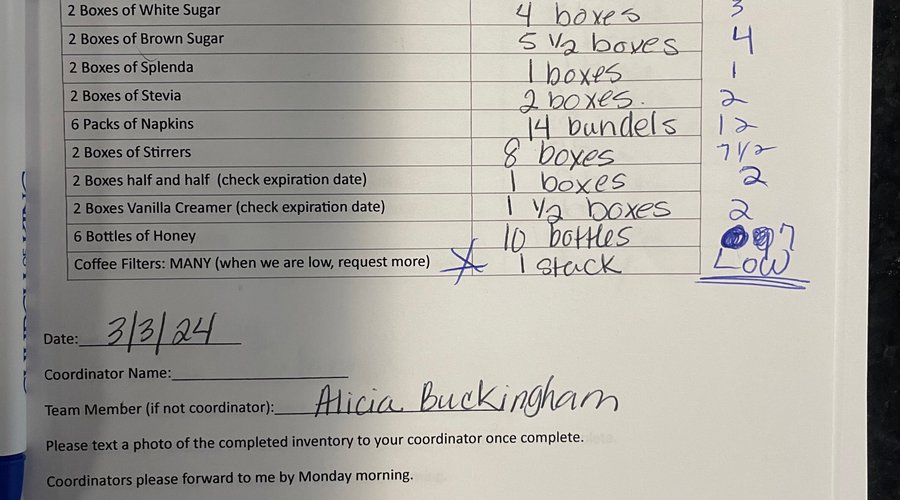 2 Boxes of White Sugar 4 boxes 3
2 Boxes of Brown Sugar 5 1/2 boxes 4
2 Boxes of Splenda 1 boxes 1
2 Boxes of Stevia 2 boxes. 2
6 Packs of Napkins 14 bundels 12
2 Boxes of Stirrers 8 boxes 7 1/2
2 Boxes half and half (check expiration date) 1 boxes 2
2 Boxes Vanilla Creamer (check expiration date) 1 1/2 boxes 2
6 Bottles of Honey 10 bottles
Coffee Filters: MANY (when we are low, request more) 1 stack LOW
Date: 3/3/24
Coordinator Name:
Team Member (if not coordinator): Alicia Buckingham
Please text a photo of the completed inventory to your coordinator once complete.
Coordinators please forward to me by Monday morning.